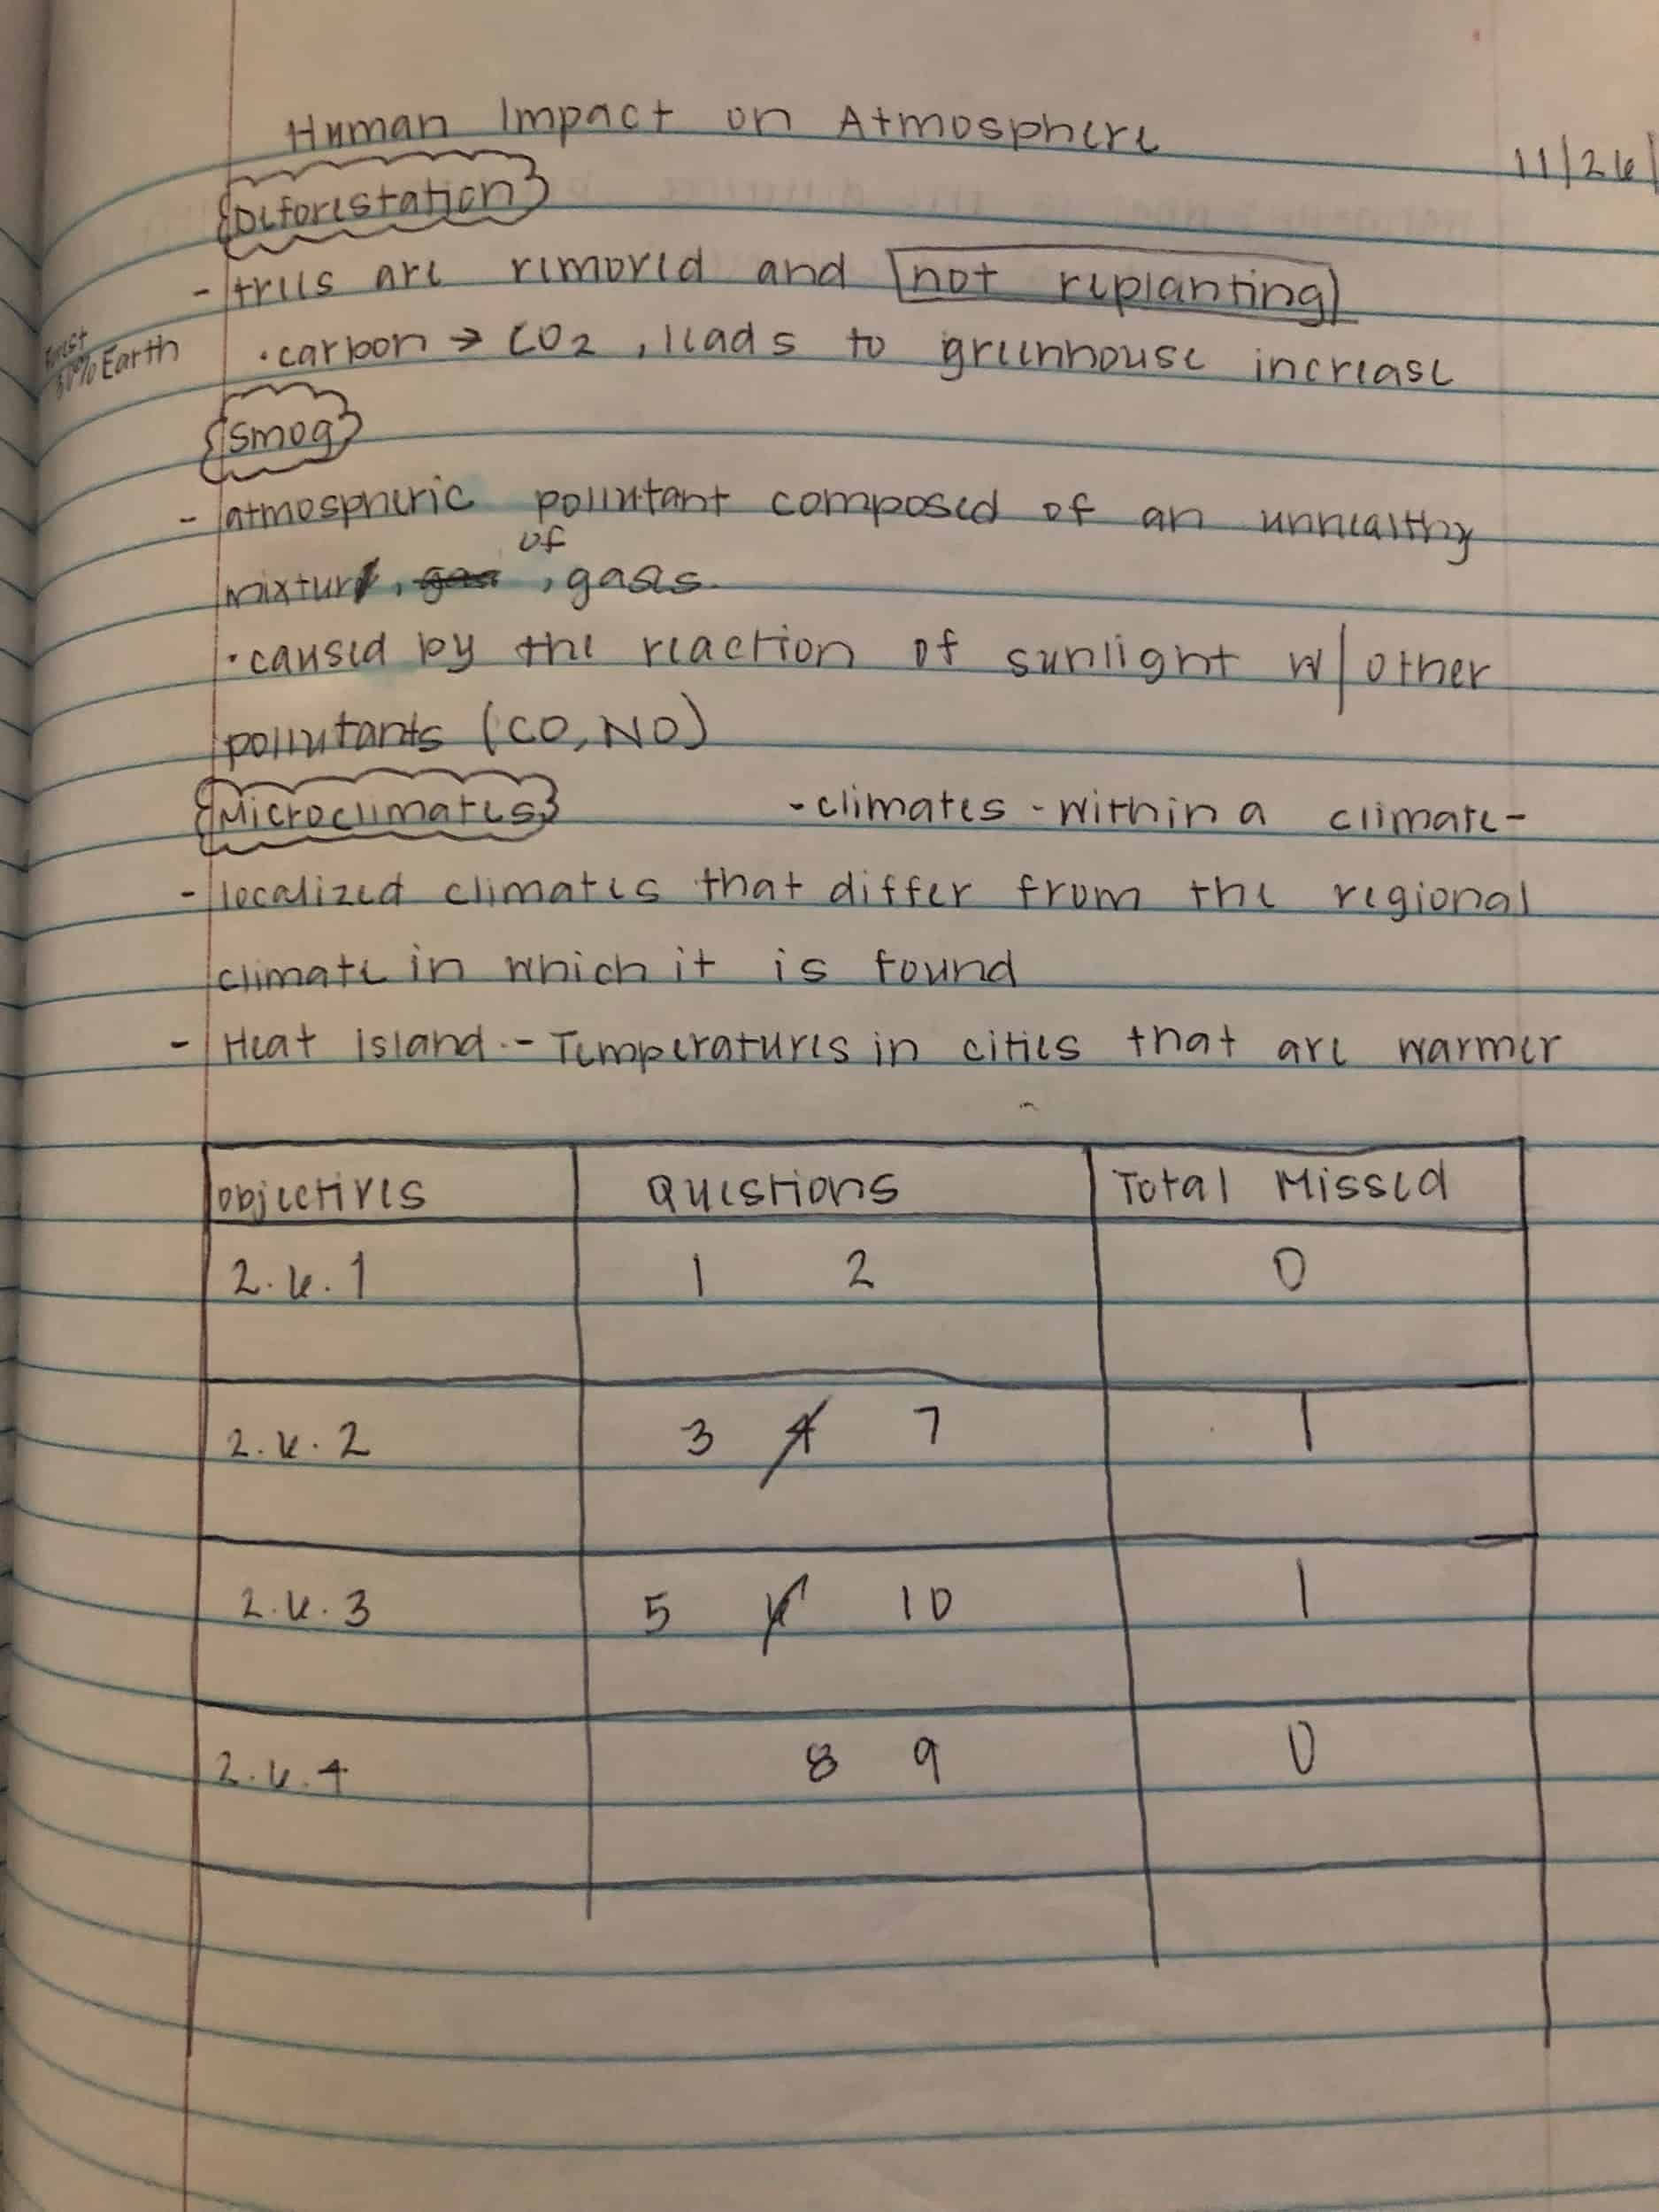 Human Impact on Atmosphere
11/26/
Deforestation
- trees are removed and not replanting
Forest
30% Earth
· carbon → CO2, leads to greenhouse increase
Smog
- atmospheric pollutant composed of an unhealthy
of
mixture, gas, gases.
· caused by the reaction of sunlight w/ other
pollutants (CO, NO)
Microclimates - climates - within a climate -
- localized climates that differ from the regional
climate in which it is found
- Heat Island - Temperatures in cities that are warmer
Objectives Questions Total Missed
2.6.1 1 2 0
2.6.2 3 4 7 1
2.6.3 5 6 10 1
2.6.4 8 9 0